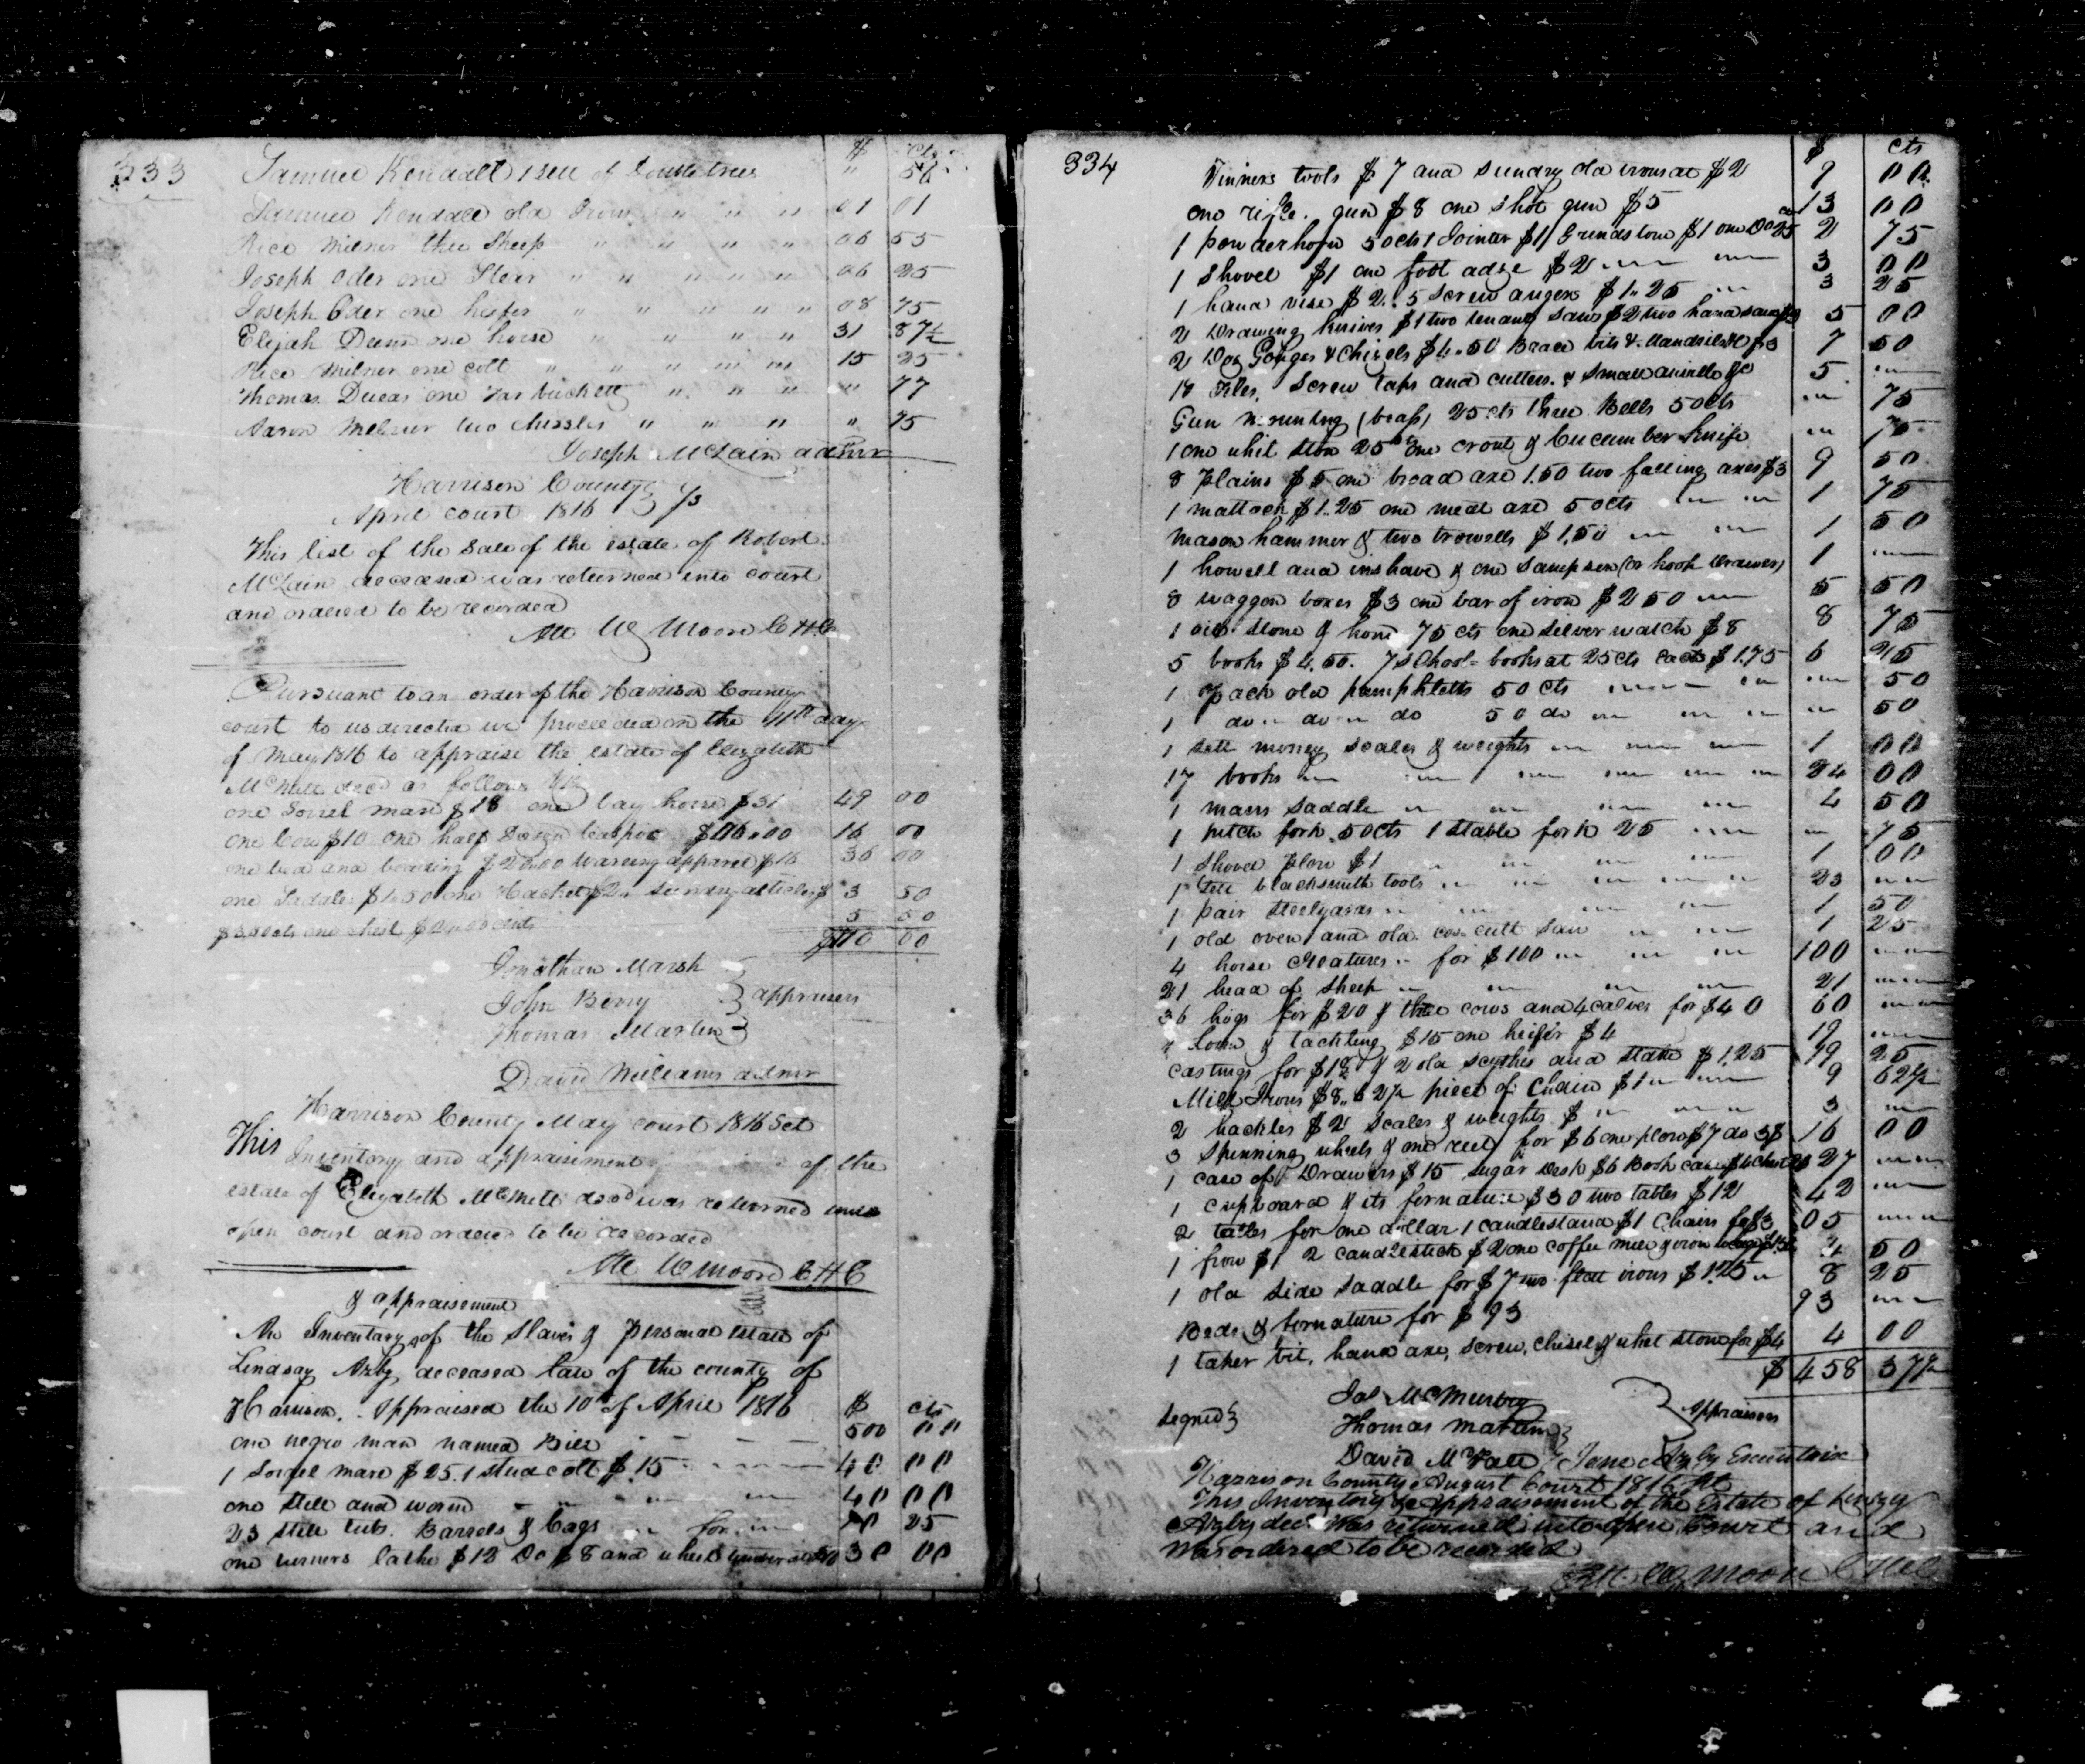 333
$ cts
Samuel Kendall 1 sett of Doubletrees " 56
Samuel Kendall old Iron " " " 01 01
Rice Milner three Sheep " " " " 06 55
Joseph Oder one Stear " " " " " 06 25
Joseph Oder one heifer " " " " " 08 75
Elijah Dunn one horse " " " " 31 87½
Rice Milner one colt " " " " " 15 25
Thomas Lucas one Tar buckett " " " " 77
Aaron Milner two chissles " " " " 75
Joseph McLain admr
Harrison County
April court 1816 } Ss
This list of the Sale of the estate of Robert
McLain deceased was returned into court
and ordered to be recorded
Att W Moore C H C
Pursuant to an order of the Harrison County
court to us directed we proceeded on the 11th day
of May 1816 to appraise the estate of Elizabeth
decd as follows Viz
one Sorrel mare $18 one bay horse $31 49 00
one Cow $10 one half $06.00 16 00
one bed and bedding $20.00 Wareing apparel $16 36 00
one Saddle $1.50 one Hackel $2 Sundry articles $ 3 50
$3.50cts one chest $2.00 cents 5 50
$110 00
Jonathan Marsh
John Berry } appraisers
Thomas Martin
David Williams admr
Harrison County May court 1816 Sct
This Inventory and appraisement of the
estate of Elizabeth decd was returned into
open court and ordered to be recorded
Att W Moore C H C
& appraisement
An Inventary of the Slaves & personal estate of
Lindsay Azby deceased late of the county of
Harrison. Appraised the 10th of April 1816 $ cts
one negro man named Bill - - - 500 00
1 Sorrel mare $25. 1 stud colt $15 40 00
one still and worm 40 00
23 still tubs. Barrels & Cags for 25
one turners lathe $12 Do $8 and wheel timber at $10 30 00
334
$ cts
Tinners tools $7 and sundry old irons at $2 9 00
one rifle gun $8 one shot gun $5 13 00
1 powderhorn 50cts 1 Jointer $1 1 Grindstone $1 one Do 25 2 75
1 Shovel $1 one foot adze $2 3 00
1 hand vise $2. 5 Screw augers $1.25 3 25
2 Drawing knives $1 two tenant saws $2 two hand saws $2 5 00
2 Doz Gouges & Chizels $4.50 Brace bits & $3 7 50
18 Files, Screw taps and cutters & small anville $5 5
Gun mounting (brass) 25 cts three Bells 50cts 75
1 one whit ston 25 one crout & Cucumber knife 75
8 plains $5 one broad axe 1.50 two falling axes $3 9 50
1 mattock $1.25 one meat axe 50cts 1 75
Mason hammer & two trowells $1.50 1 50
1 howell and inshave & one Sampson (or hook Drawer) 1
8 waggon boxes $3 one bar of iron $2 50 5 50
1 oil stone & hone 75 cts one silver watch $8 8 75
5 books $4.50. 7 School-books at 25 cts each $1.75 6 25
1 pack old pamphletts 50 cts 50
1 do do do 50 do 50
1 sett money scales & weights 1 00
17 books 24 00
1 mans saddle 4 50
1 pitch fork 50cts 1 stable fork 25 75
1 Shovel plow $1 1 00
1 sett blacksmith tools 23
1 pair steelyards 1 50
1 old oven and old cross cutt saw 1 25
4 horse creatures for $100 100
21 head of sheep 21
36 hogs for $20 & three cows and 4 calves for $40 60
1 Loom & tackling $15 one heifer $4 19
Castings for $18 & 2 old scythes and stake $1.25 19 25
Mill Irons $8.62½ piece of Chain $1 9 62½
2 hackles $2 scales & weights $ 3
3 spinning wheels & one reel for $6 one plow $7 do 3$ 16 00
1 case of Drawers $15 sugar desk $6 Book case $4 chest 27
1 cupboard & its furnature $30 two tables $12 42
2 tables for one dollar 1 candlestand $1 Chairs for $3 05
1 frow $1 2 candlestick $2 one coffee mill & iron 4 50
1 old side saddle for $7 two flatt irons $1.25 8 25
Beds & furnature for $93 93
1 taper bit, hand axe, screw, chisel & whet stone for $4 4 00
$ 458 37½
Signed }
Jas McMurtry
Thomas Martin } Appraisers
David McFall
Jane Azby Executrix
Harrison County August Court 1816 Sct
This Inventory & appraisement of the Estate of Linzey
Azby decd was returned into open Court and
was ordered to be recorded
Att W Moore C H C